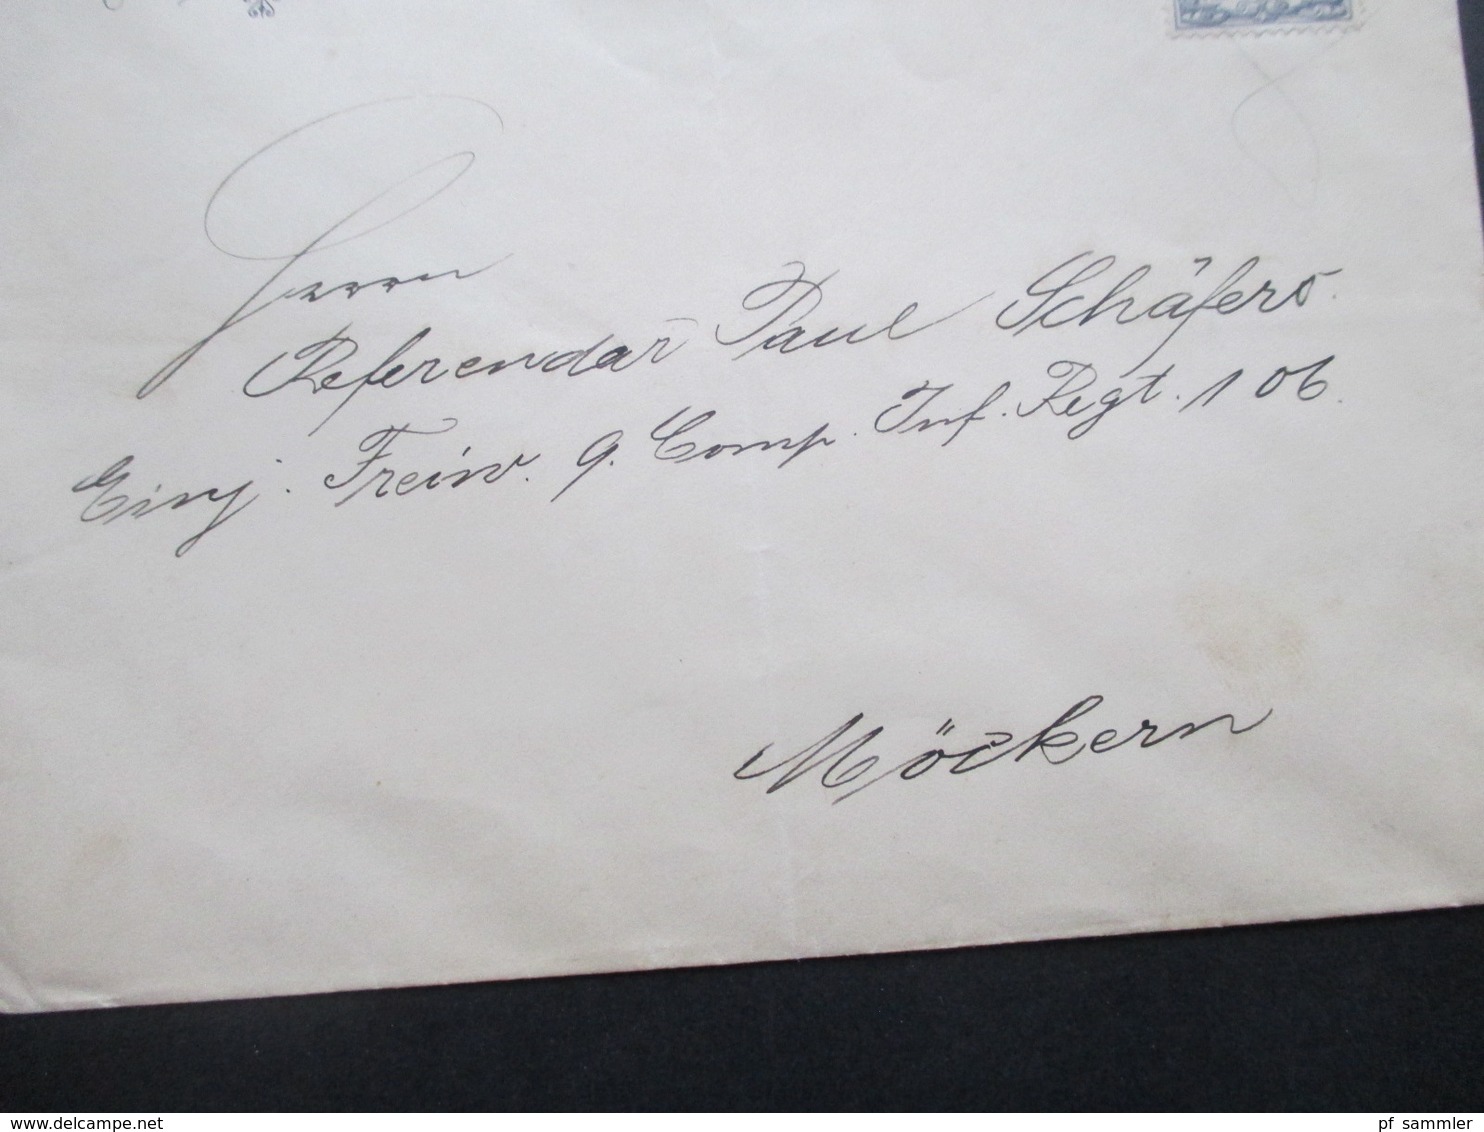 Herrn
Referendar Paul Schäfers.
Einj. Freiw. 9. Comp. Inf. Regt. 106.
Möckern
www.delcampe.net
pf_sammler